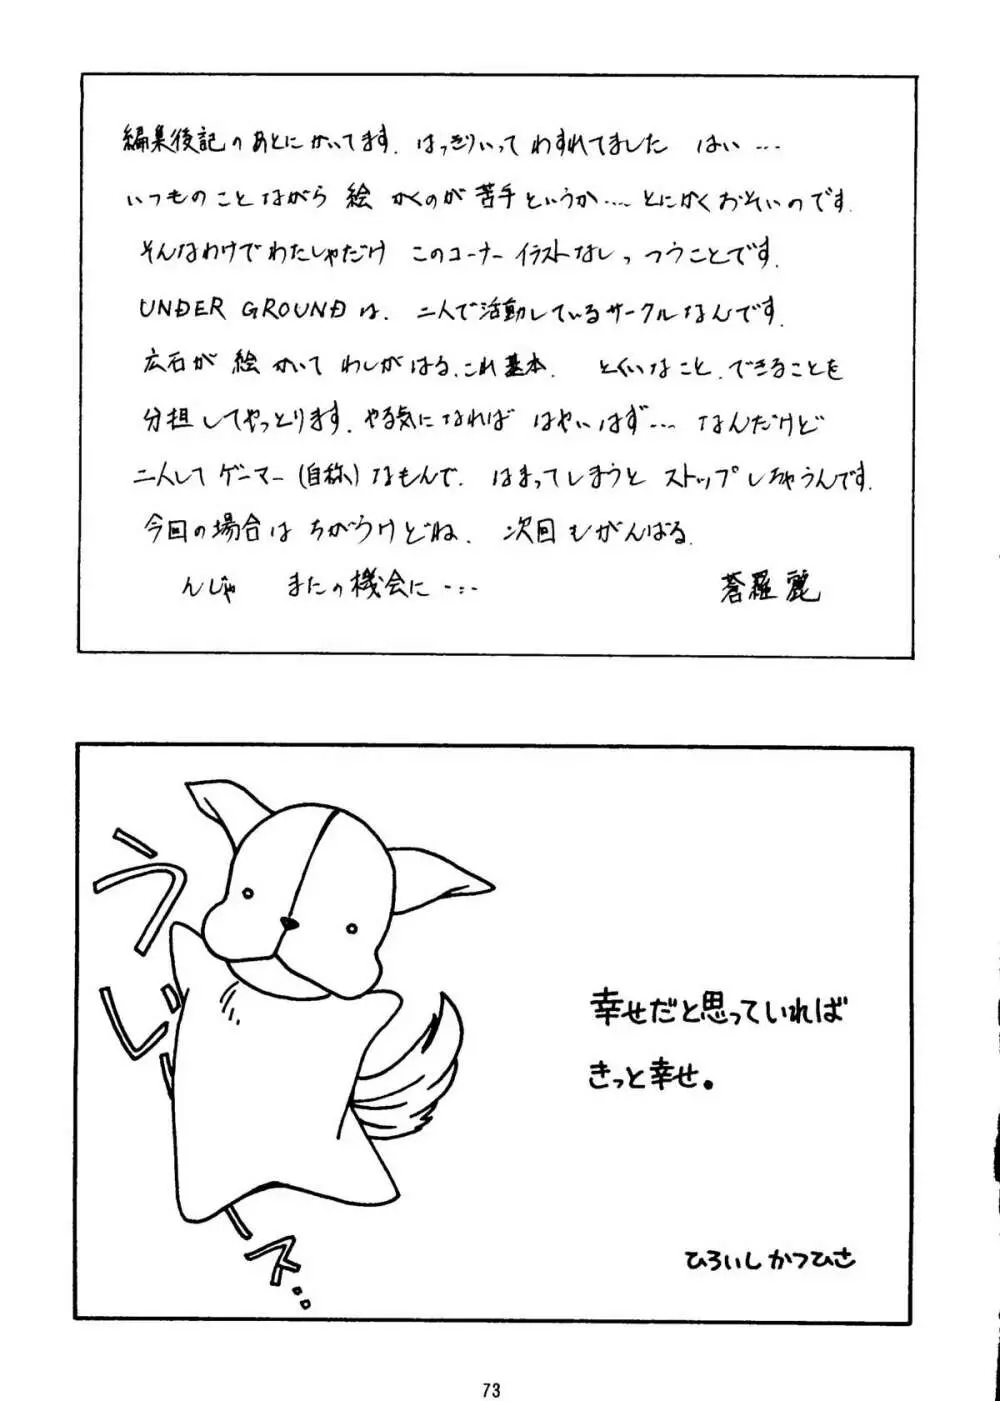 編集後記のあとにかいてます. はっきりいって わすれてました はい…
いつものこと ながら 絵 かくのが 苦手というか…… とにかく おそいのです.
そんなわけで わたしゃだけ このコーナー イラストなしっ つうことです.
UNDER GROUNDは. 二人で活動しているサークルなんです.
広石が 絵 かいて わしがはる. これ基本. とくいなこと. できることを
分担してやっとります. やる気になれば はやいはず…… なんだけど
二人して ゲーマー(自称)なもんで. はまってしまうと ストップしちゃうんです.
今回の場合は ちがうけどね. 次回もがんばる.
んじゃ またの機会に…
蒼羅 麗
幸せだと思っていれば
きっと幸せ。
ひろいし かつひさ
73